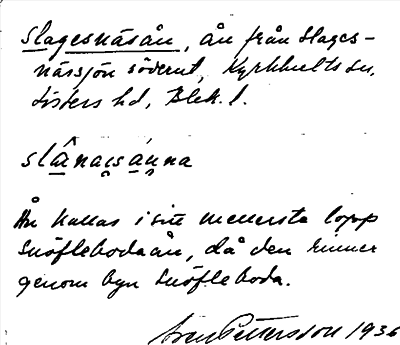 Slagesnäsån, ån från Slages-
nässjön söderut, Kyrkhults sn,
Listers hd, Blek. l.
slânac̨sánna
Ån kallas i sitt mellersta lopp
Snöflebodaån, då den rinner
genom byn Snöfleboda.
Sven Pettersson 1936